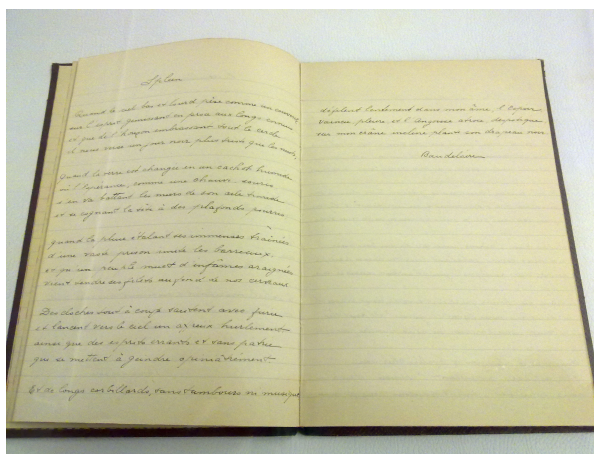 Spleen
Quand le ciel bas et lourd, pèse comme un couvercle
sur l'esprit gémissant en proie aux longs ennuis
et que de l'horizon embrassant tout le cercle
il nous verse un jour noir plus triste que les nuits,
Quand la terre est changée en un cachot humide
où l'Espérance, comme une chauve souris
s'en va battant les murs de son aile timide
et se cognant la tête à des plafonds pourris.
Quand la pluie étalant ses immenses traînées
d'une vaste prison imite les barreaux
et qu'un peuple muet d'infâmes araignées
vient tendre ses filets au fond de nos cerveaux
Des cloches tout à coup sautent avec furie
et lancent vers le ciel un affreux hurlement
ainsi que des esprits errants et sans patrie
qui se mettent à geindre opiniâtrement
Et de longs corbillards, sans tambours ni musique
défilent lentement dans mon âme, l'Espoir
vaincu pleure, et l'Angoisse atroce, despotique
sur mon crâne incliné plante son drapeau noir
Baudelaire